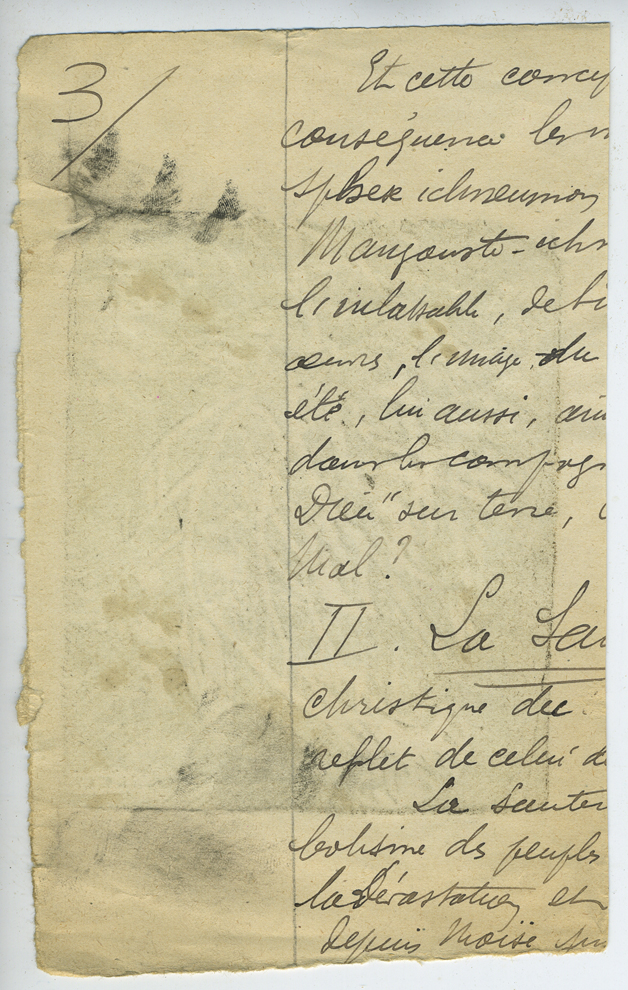 3/
Et cette concep
conséquence les
Sphex ichneumon
Mangouste-ichn
l'inlassable, de
œuvres, l'image du
été, lui aussi,
dans les
Dieu" sur terre,
Mal ?
II. La Sau
christique du
reflet de celui d
La Sauter
bolisme des peuples
la Dévastation et
depuis Moïse